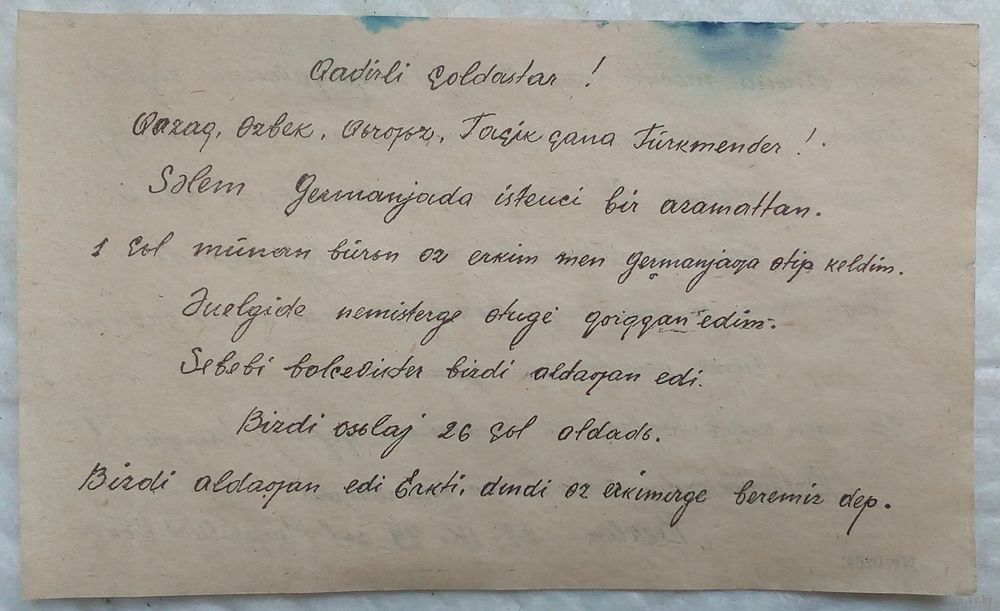 Qadirli çoldastar!
Qazaq, Ɵzbek, Qьrƣьz, Taçik çana Türkmender!
Sələm Germanjada isteuci bir azamattan.
1 çьl mūnan būrьn ɵz erkim men Germanjaƣa ɵtip keldim.
Əuelgide nemisterge ɵtuge qorqqan edim.
Sebebi bolcevikter bizdi aldaƣan edi.
Bizdi osьlaj 26 çьl aldadь.
Bizdi aldaƣan edi Erkti, dindi ɵz erkinizge beremiz dep.
www.ay.by